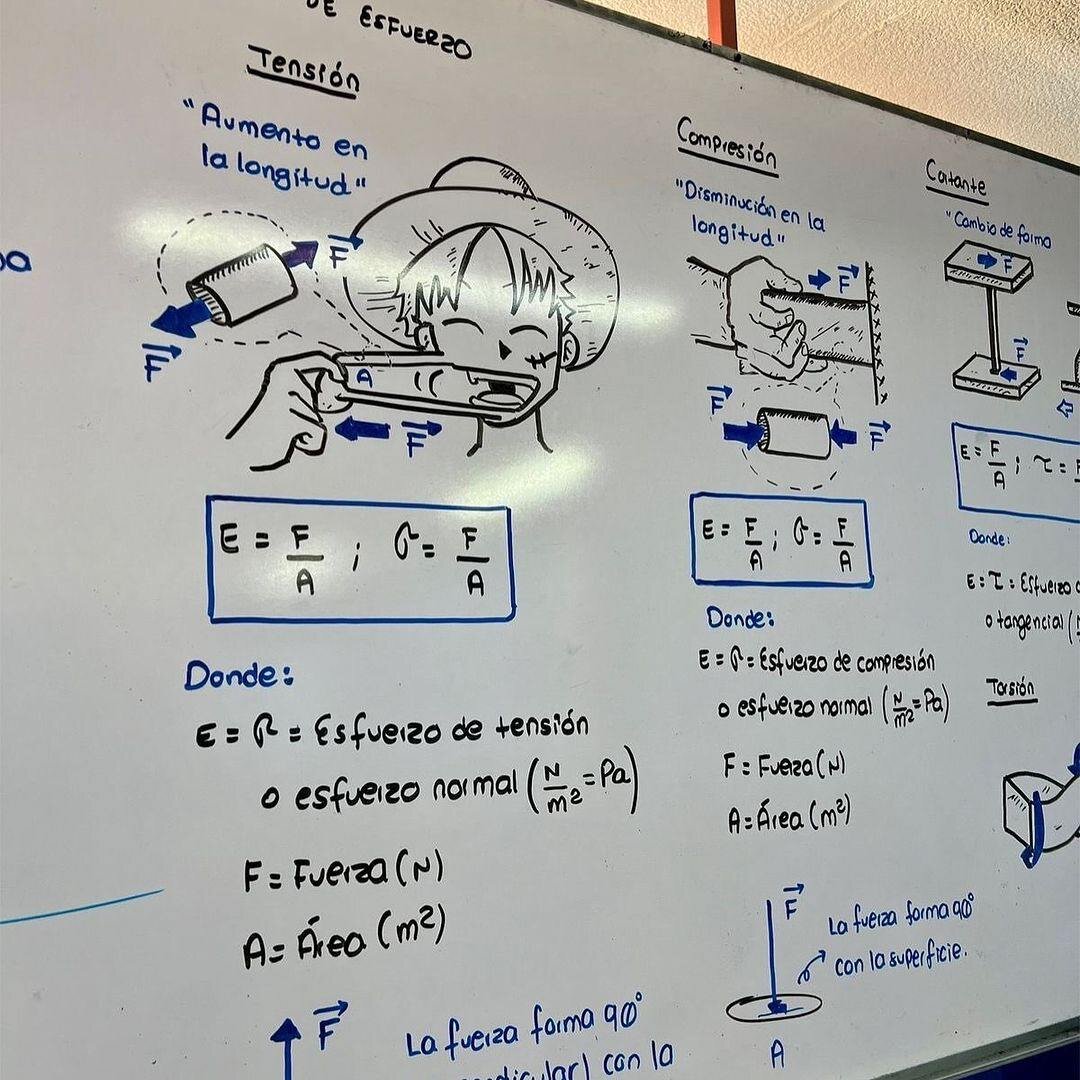 DE ESFUERZO
Tensión
"Aumento en
la longitud"
F
F
A
F
E = F/A ; σ = F/A
Donde:
E = σ = Esfuerzo de tensión
o esfuerzo normal (N/m² = Pa)
F = Fuerza (N)
A = Área (m²)
F
La fuerza forma 90°
con la
Compresión
"Disminución en la
longitud"
F
F
F
E = F/A ; σ = F/A
Donde:
E = σ = Esfuerzo de compresión
o esfuerzo normal (N/m² = Pa)
F = Fuerza (N)
A = Área (m²)
F
La fuerza forma 90°
con la superficie.
A
Cortante
"Cambio de forma
F
F
E = F/A ; τ = F
Donde:
E = τ = Esfuerzo
o tangencial (
Torsión